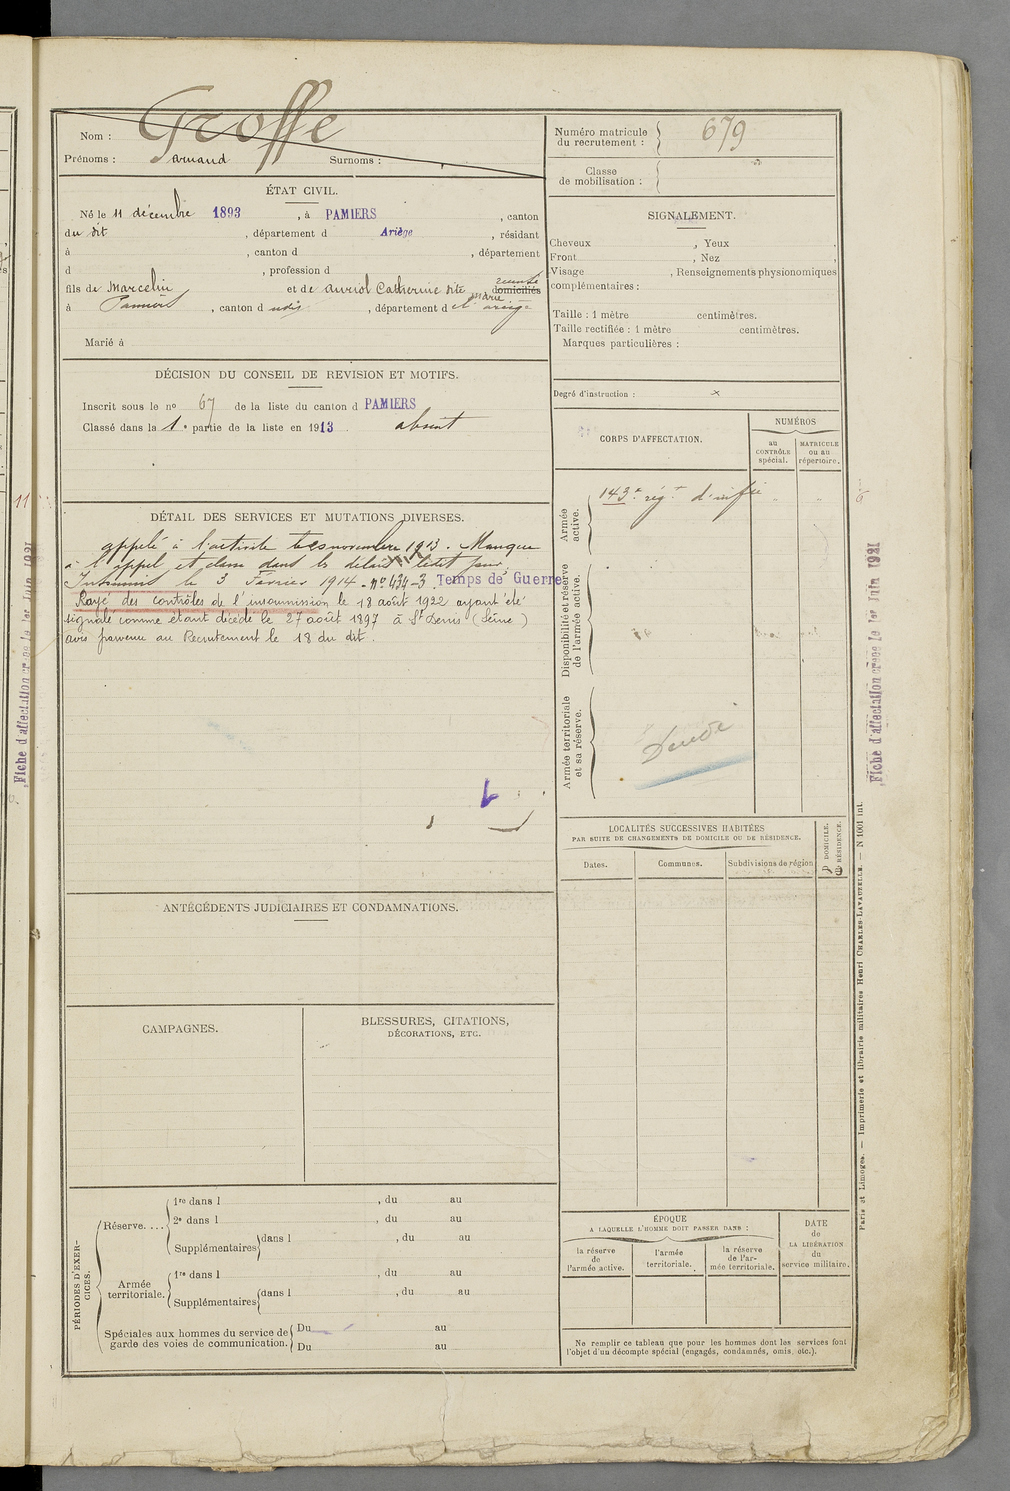 Nom : Groffe
Prénoms : Armand Surnoms :
Numéro matricule du recrutement : 679
Classe de mobilisation :
ÉTAT CIVIL.
Né le 11 décembre 1893, à PAMIERS, canton
du dit, département d Ariège, résidant
à, canton d, département
d, profession d
fils de Marcelin et de Auriol Catherine dite Marie domiciliés
à Pamiers, canton d udis, département d e l'ariège
Marié à
SIGNALEMENT.
Cheveux, Yeux,
Front, Nez,
Visage, Renseignements physionomiques
complémentaires :
Taille : 1 mètre centimètres.
Taille rectifiée : 1 mètre centimètres.
Marques particulières :
Degré d'instruction : x
DÉCISION DU CONSEIL DE REVISION ET MOTIFS.
Inscrit sous le no 67 de la liste du canton d PAMIERS
Classé dans la 1e partie de la liste en 1913 absent
CORPS D'AFFECTATION.
NUMÉROS
au CONTRÔLE spécial.
MATRICULE ou au répertoire.
Armée active.
143e régt d'infie " "
Disponibilité et réserve de l'armée active.
Armée territoriale et sa réserve.
Décédé
DÉTAIL DES SERVICES ET MUTATIONS DIVERSES.
appelé à l'activité le novembre 1913. Manque
à l'appel et dans les délais
Insoumis le 3 Février 1914 - no 434-3 Temps de Guerre
Rayé des contrôles de l'insoumission le 18 août 1922 ayant été
signalé comme étant décédé le 27 août 1897 à St Denis (Seine)
avis parvenu au Recrutement le 18 du dit.
LOCALITÉS SUCCESSIVES HABITÉES
PAR SUITE DE CHANGEMENTS DE DOMICILE OU DE RÉSIDENCE.
Dates. Communes. Subdivisions de région
D DOMICILE.
R RÉSIDENCE.
ANTÉCÉDENTS JUDICIAIRES ET CONDAMNATIONS.
CAMPAGNES.
BLESSURES, CITATIONS,
DÉCORATIONS, ETC.
PÉRIODES D'EXERCICES.
Réserve....
1re dans l, du au
2e dans l, du au
Supplémentaires dans l, du au
Armée territoriale.
1re dans l, du au
Supplémentaires dans l, du au
Spéciales aux hommes du service de garde des voies de communication.
Du au
Du au
ÉPOQUE
A LAQUELLE L'HOMME DOIT PASSER DANS :
la réserve de l'armée active.
l'armée territoriale.
la réserve de l'armée territoriale.
DATE de LA LIBÉRATION du service militaire.
Ne remplir ce tableau que pour les hommes dont les services font
l'objet d'un décompte spécial (engagés, condamnés, omis, etc.).
Fiche d'affectation créée le 1er Juin 1921
Fiche d'affectation créée le 1er Juin 1921
Paris et Limoges. — Imprimerie et librairie militaires Henri CHARLES-LAVAUZELLE. — N 1001 int.
11